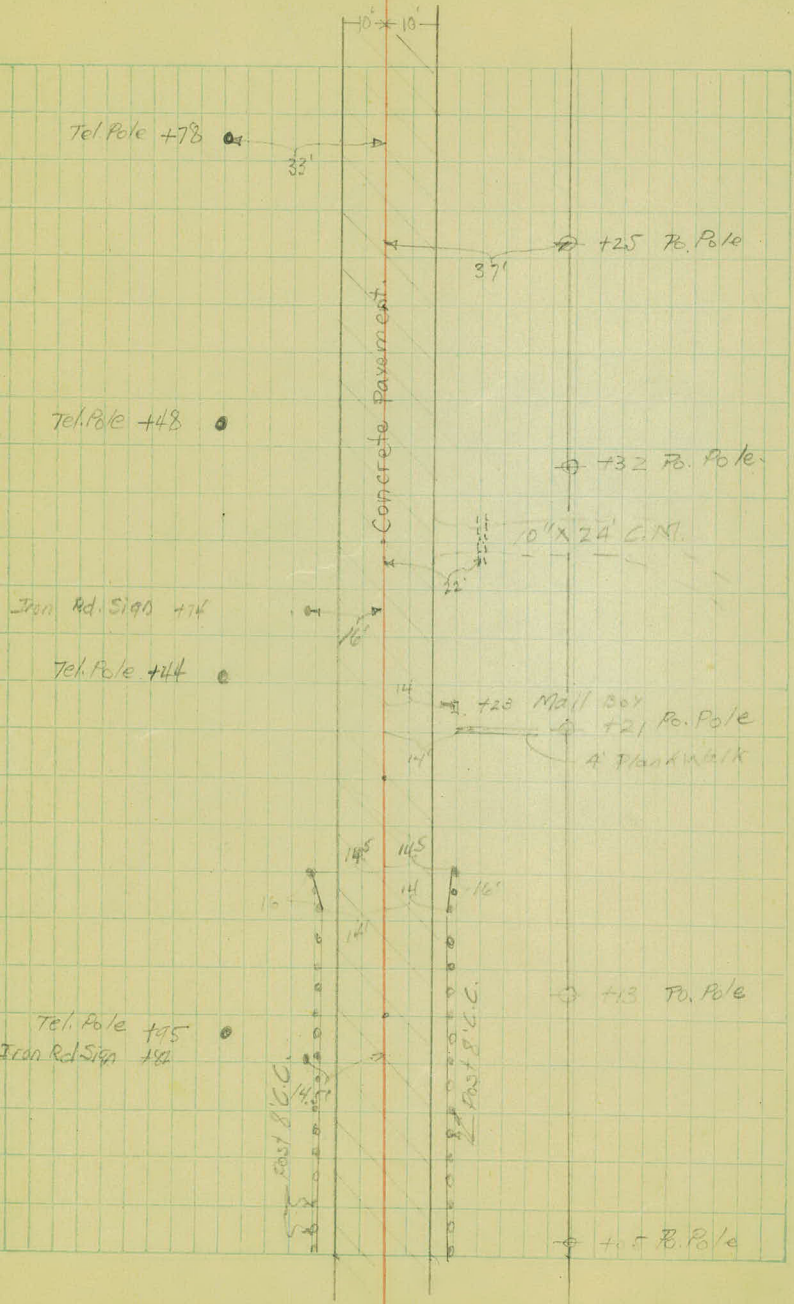 10' 10'
Tel. Pole +78
33'
+25 Po. Pole
37'
Concrete Pavement.
Tel. Pole +48
+32 Po. Pole.
10" X 24' C.M.
22'
Iron Rd. Sign +74
16'
Tel. Pole +44
14
+23 Mail Box
+21 Po. Pole
14'
4' Plank Walk
14⁵ 14⁵
16 14 16'
14'
+13 Po. Pole
Tel. Pole +95
Iron Rd Sign +82
14.5'
Post 8' C.C.
Post 8' C.C.
Po. Pole